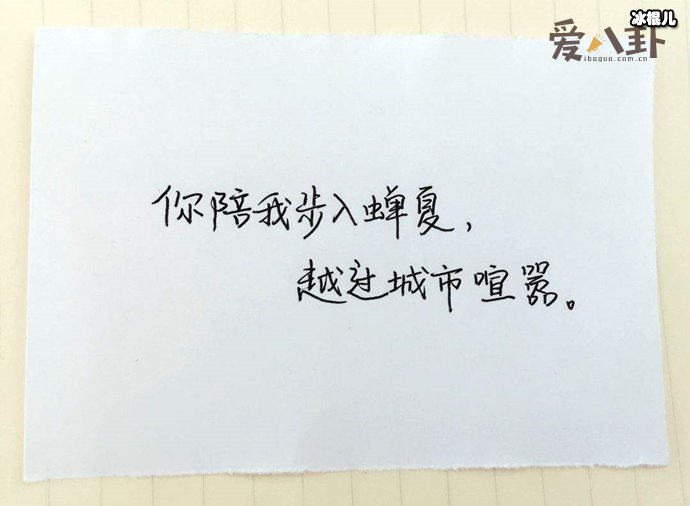 冰棍儿
爱八卦
ibagua.com.cn
你陪我步入蝉夏，
越过城市喧嚣。